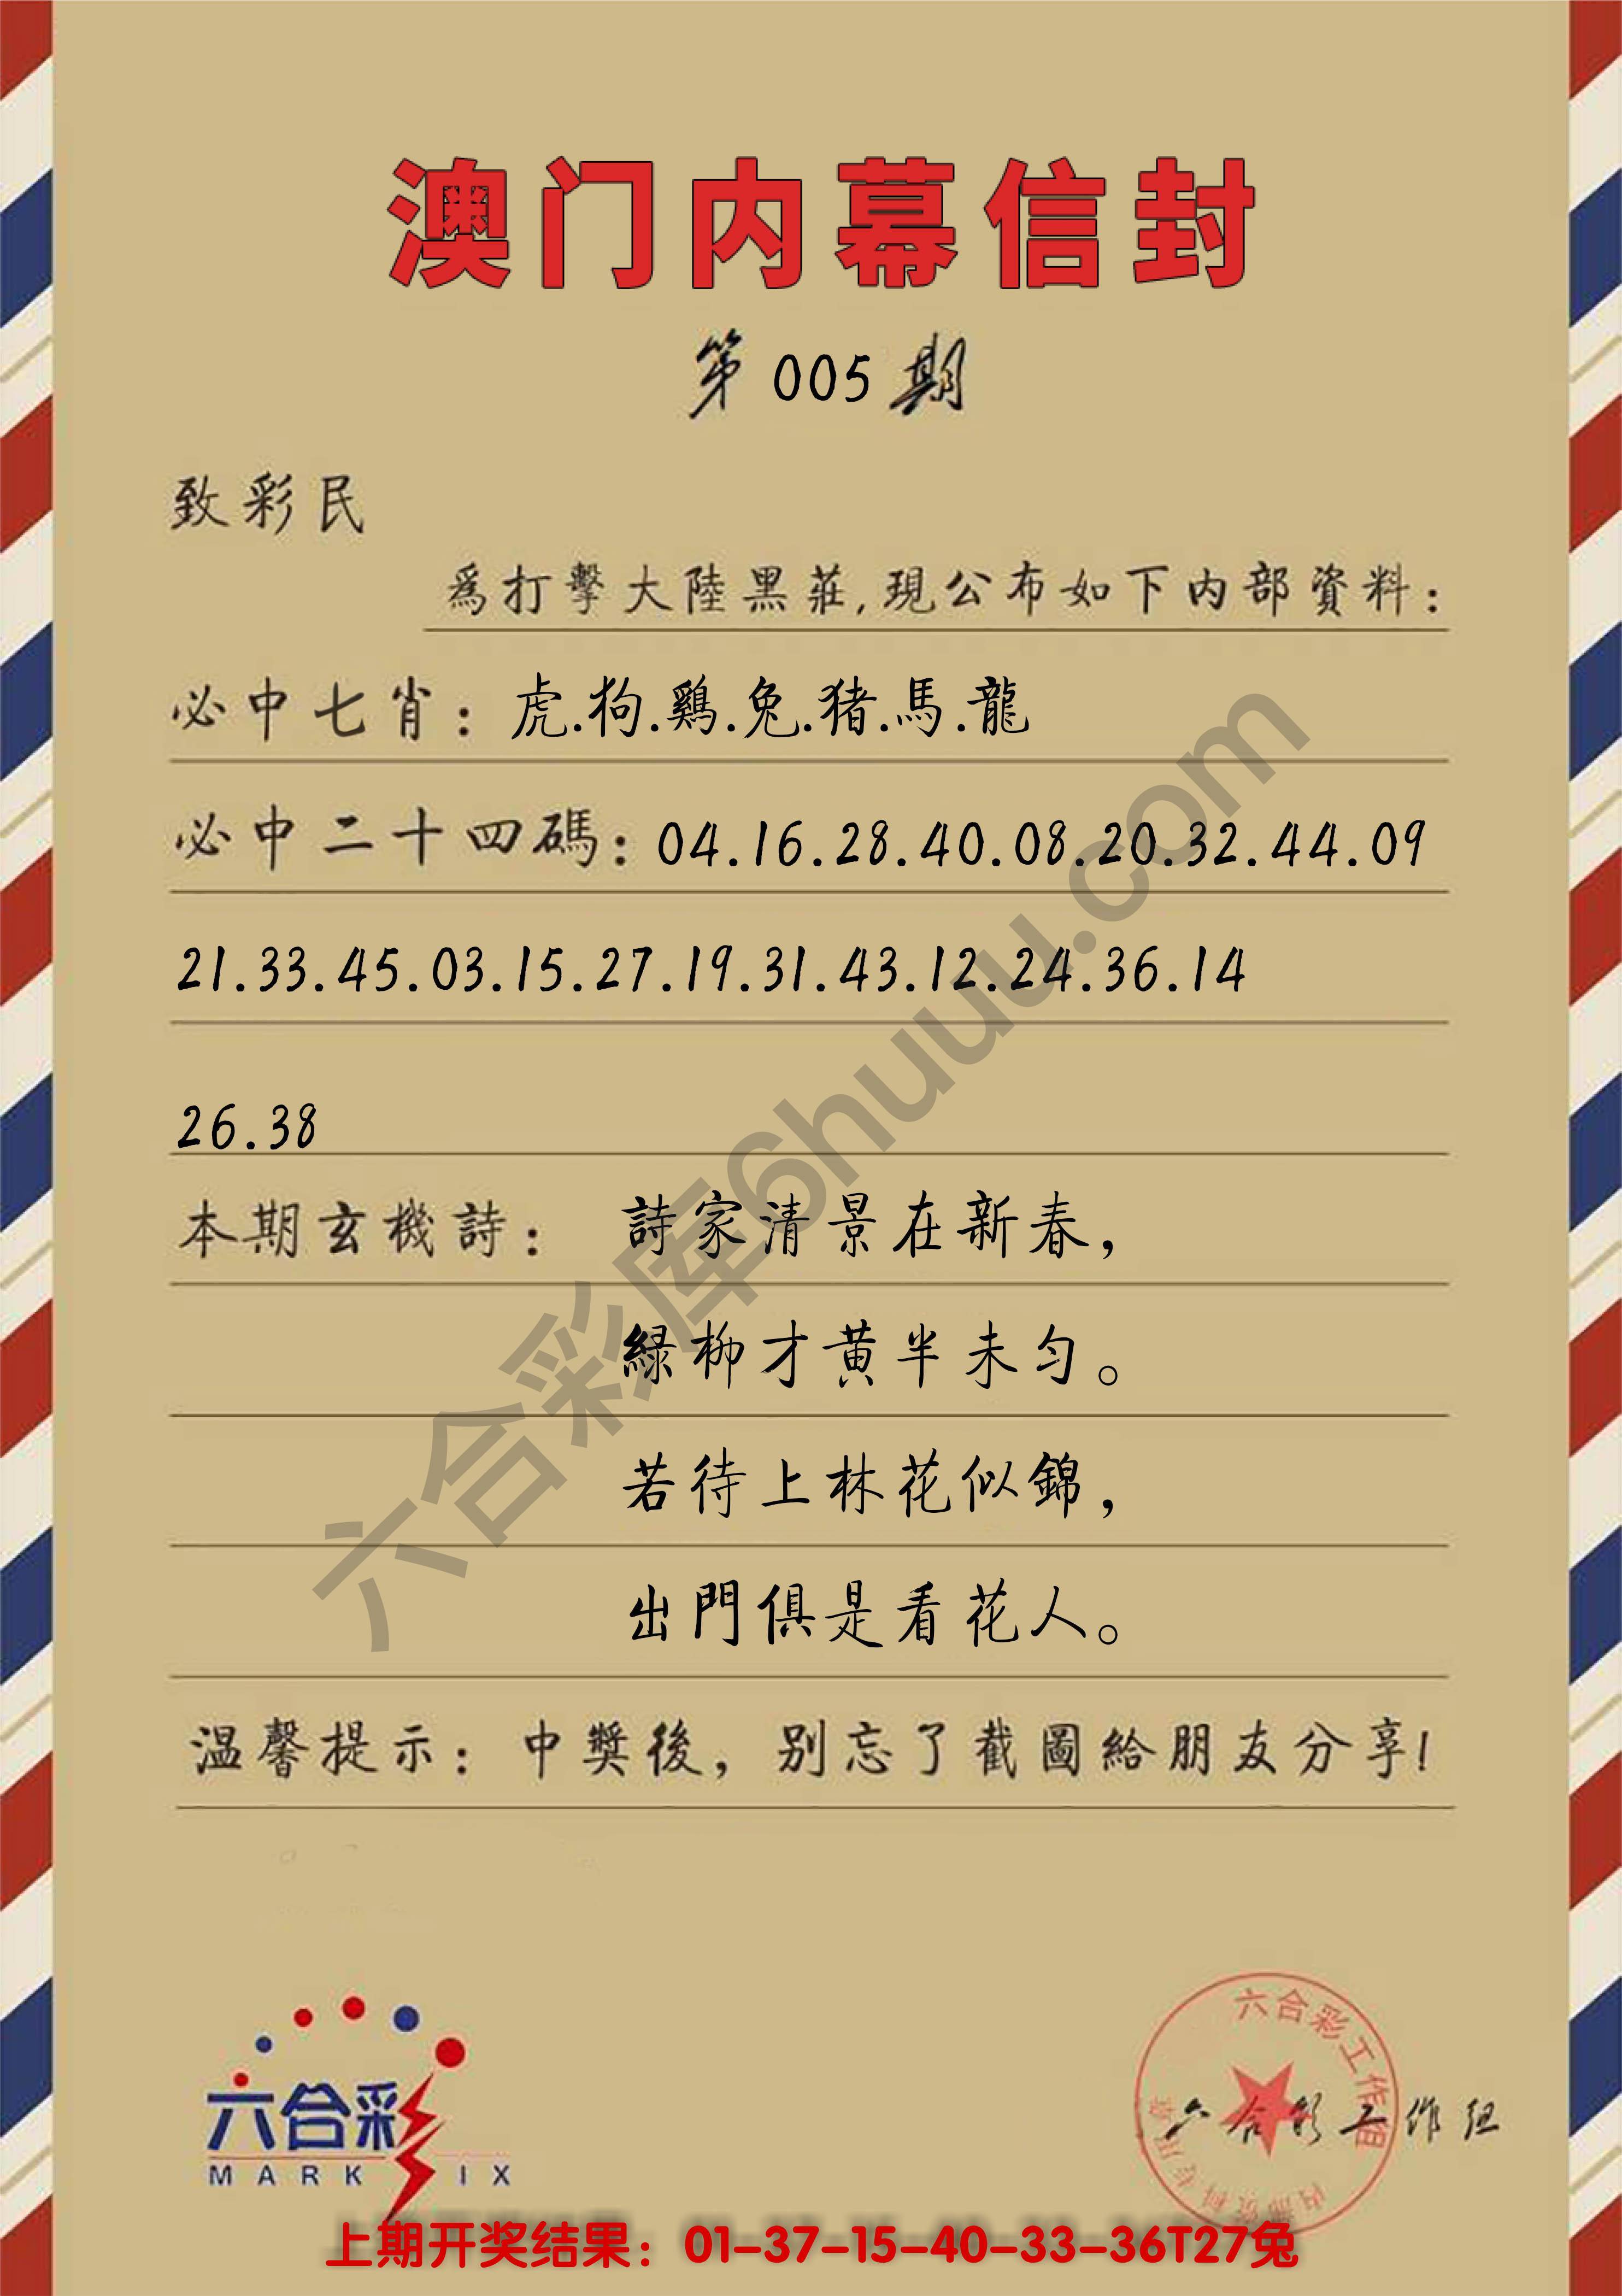 澳门内幕信封
第005期
致彩民
爲打擊大陸黑莊,現公布如下内部資料:
必中七肖:虎.狗.鷄.兔.猪.馬.龍
必中二十四碼:04.16.28.40.08.20.32.44.09
21.33.45.03.15.27.19.31.43.12.24.36.14
26.38
本期玄機詩: 詩家清景在新春,
緑柳才黄半未匀。
若待上林花似錦,
出門俱是看花人。
温馨提示:中獎後,别忘了截圖給朋友分享!
六合彩库6huuu.com
六合彩
MARK IX
六合彩工作组
六合彩工作组
上期开奖结果:01-37-15-40-33-36T27兔